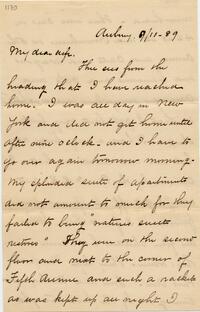 1170
Asbury, 9/11-89
My dear wife.
This sees from the
heading that I have reached
home. I was all day in New
York and did not get home until
after nine o'clock. and I have to
go over again tomorrow morning.
My splendid suite of apartments
did not amount to much for they
failed to bring "natures sweet
restorer" They were on the second
floor and next to the corner of
Fifth Avenue and such a racket
as was kept up all night I